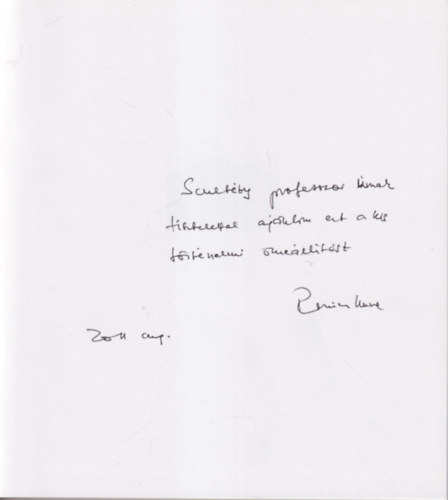 professzor úrnak
tisztelettel ajánlom ezt a kis
történelmi összeállítást
2011 aug.